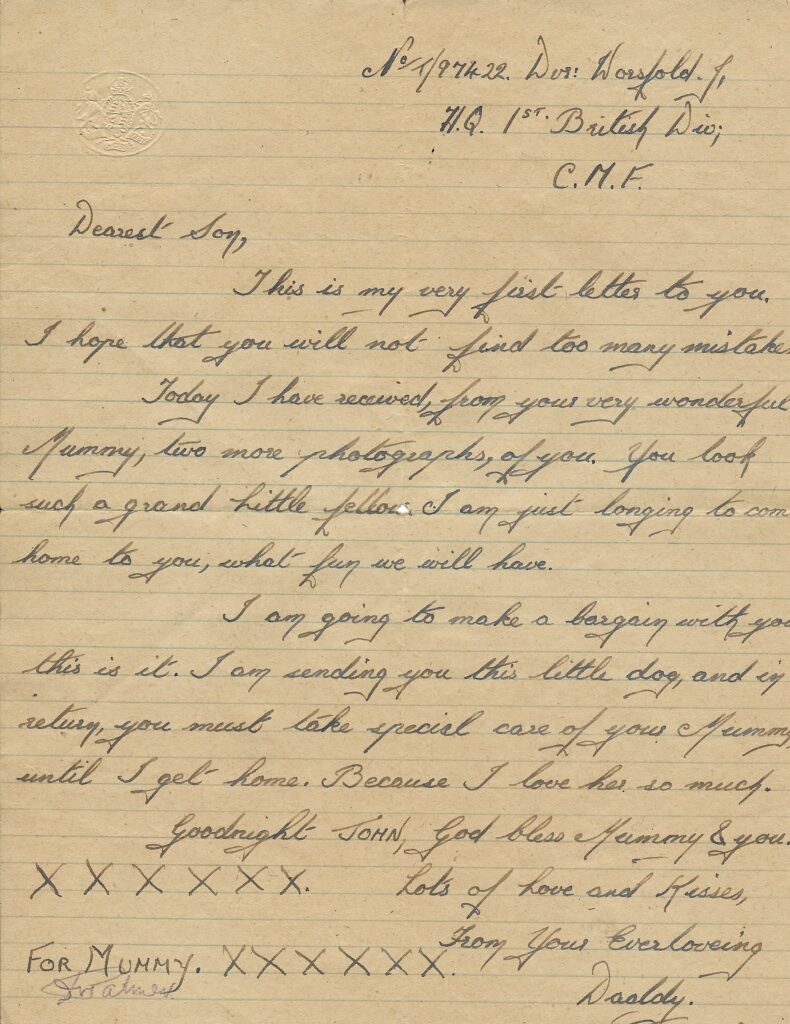 No T/97422. Dvr: Worsfold. J,
H.Q. 1ST. British Div;
C.M.F.
Dearest Son,
This is my very first letter to you.
I hope that you will not find too many mistakes
Today I have received, from your very wonderful
Mummy, two more photographs, of you. You look
such a grand little fellow. I am just longing to com
home to you, what fun we will have.
I am going to make a bargain with you
this is it. I am sending you this little dog, and in
return, you must take special care of your Mummy
until I get home. Because I love her so much.
Goodnight JOHN, God bless Mummy & you.
X X X X X X. Lots of Love and Kisses,
From Your Everloveing
FOR MUMMY. X X X X X X.
Daddy.